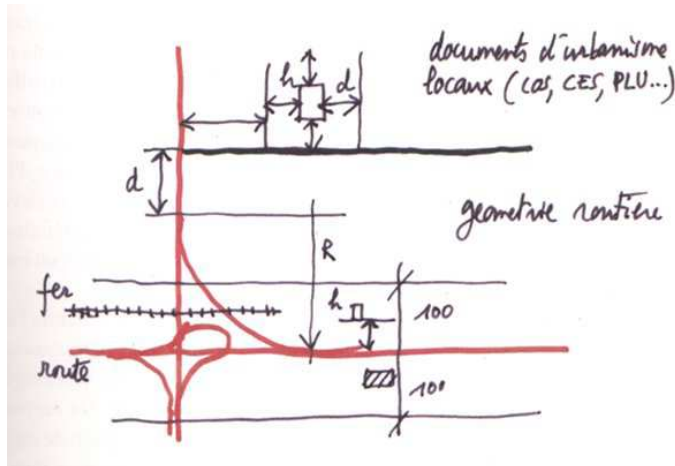 documents d'urbanisme
locaux (cos, CES, PLU...)
h
d
d
geometrie routière
R
fer
h
100
route
100